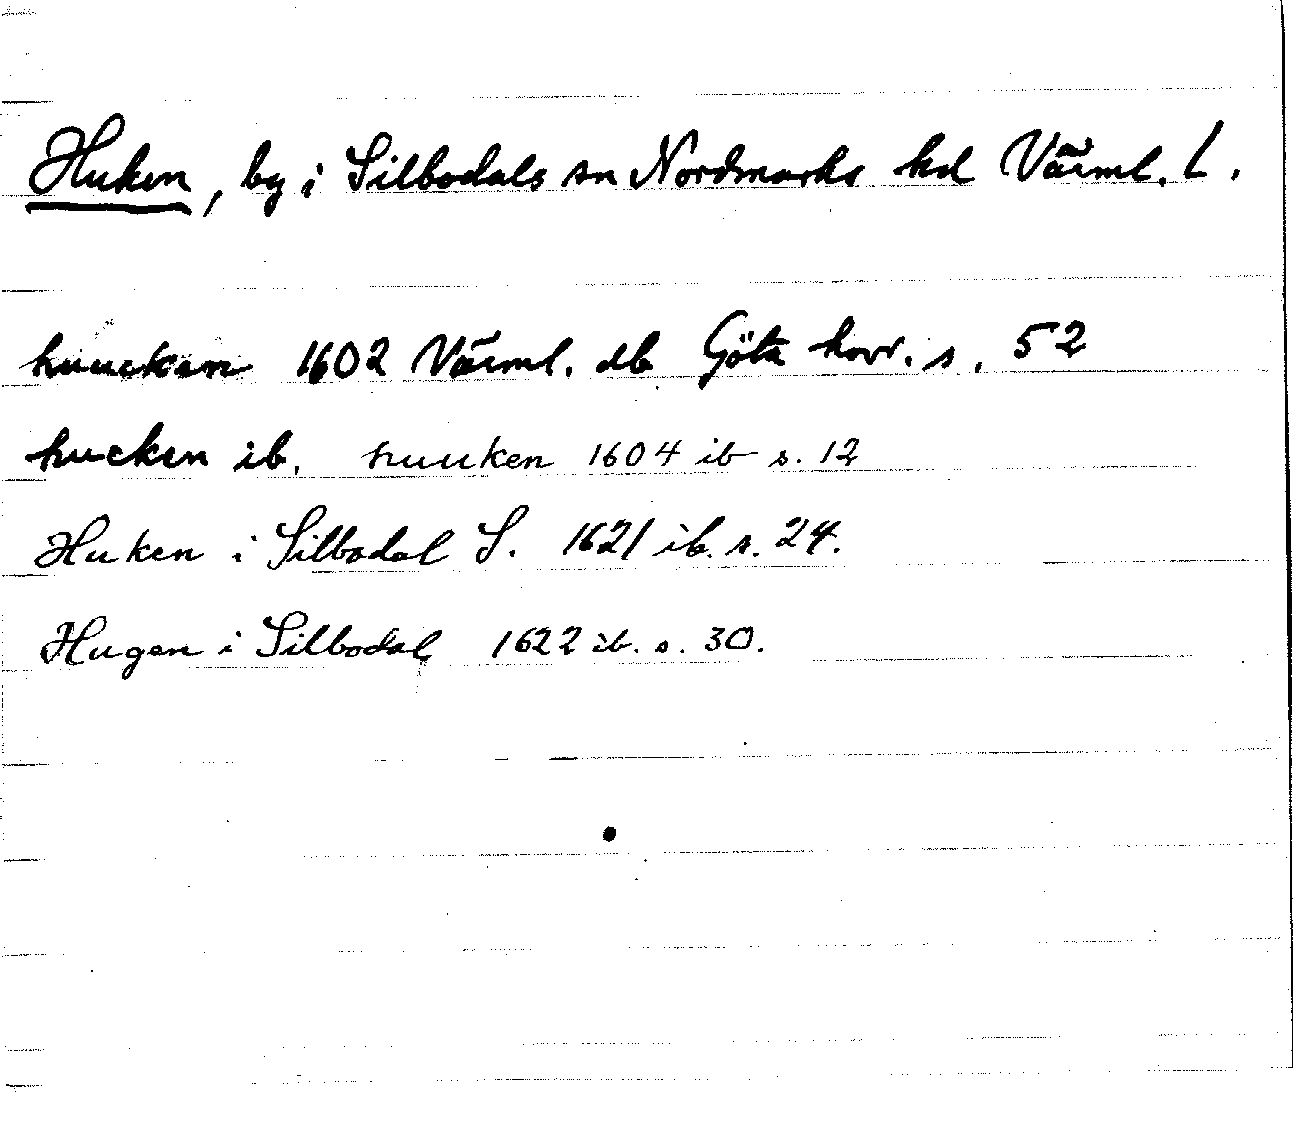 Huken, by i Silbodals sn Nordmarks hd Värml. L.
huuckan 1602 Värml. db Göta hovr. s. 52
hucken ib. huuken 1604 ib s. 12
Huken i Silbodal S. 1621 ib. s. 24.
Hugen i Silbodal 1622 ib. s. 30.